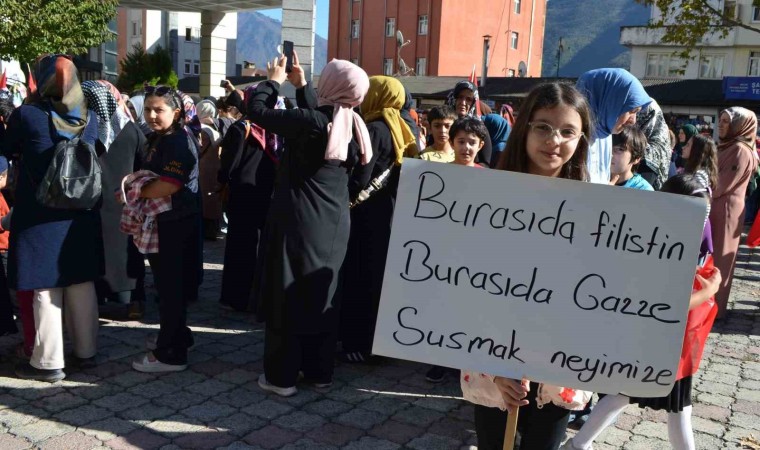 Burasıda filistin
Burasıda Gazze
Susmak neyimize